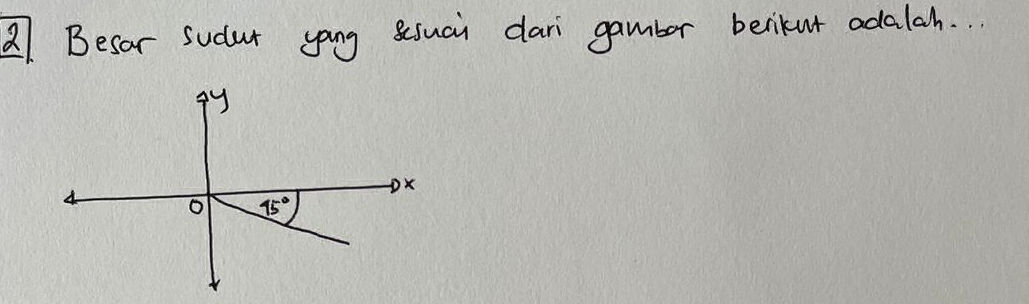 2. Besar sudut yang sesuai dari gambar berikut adalah...
y
x
O 45°